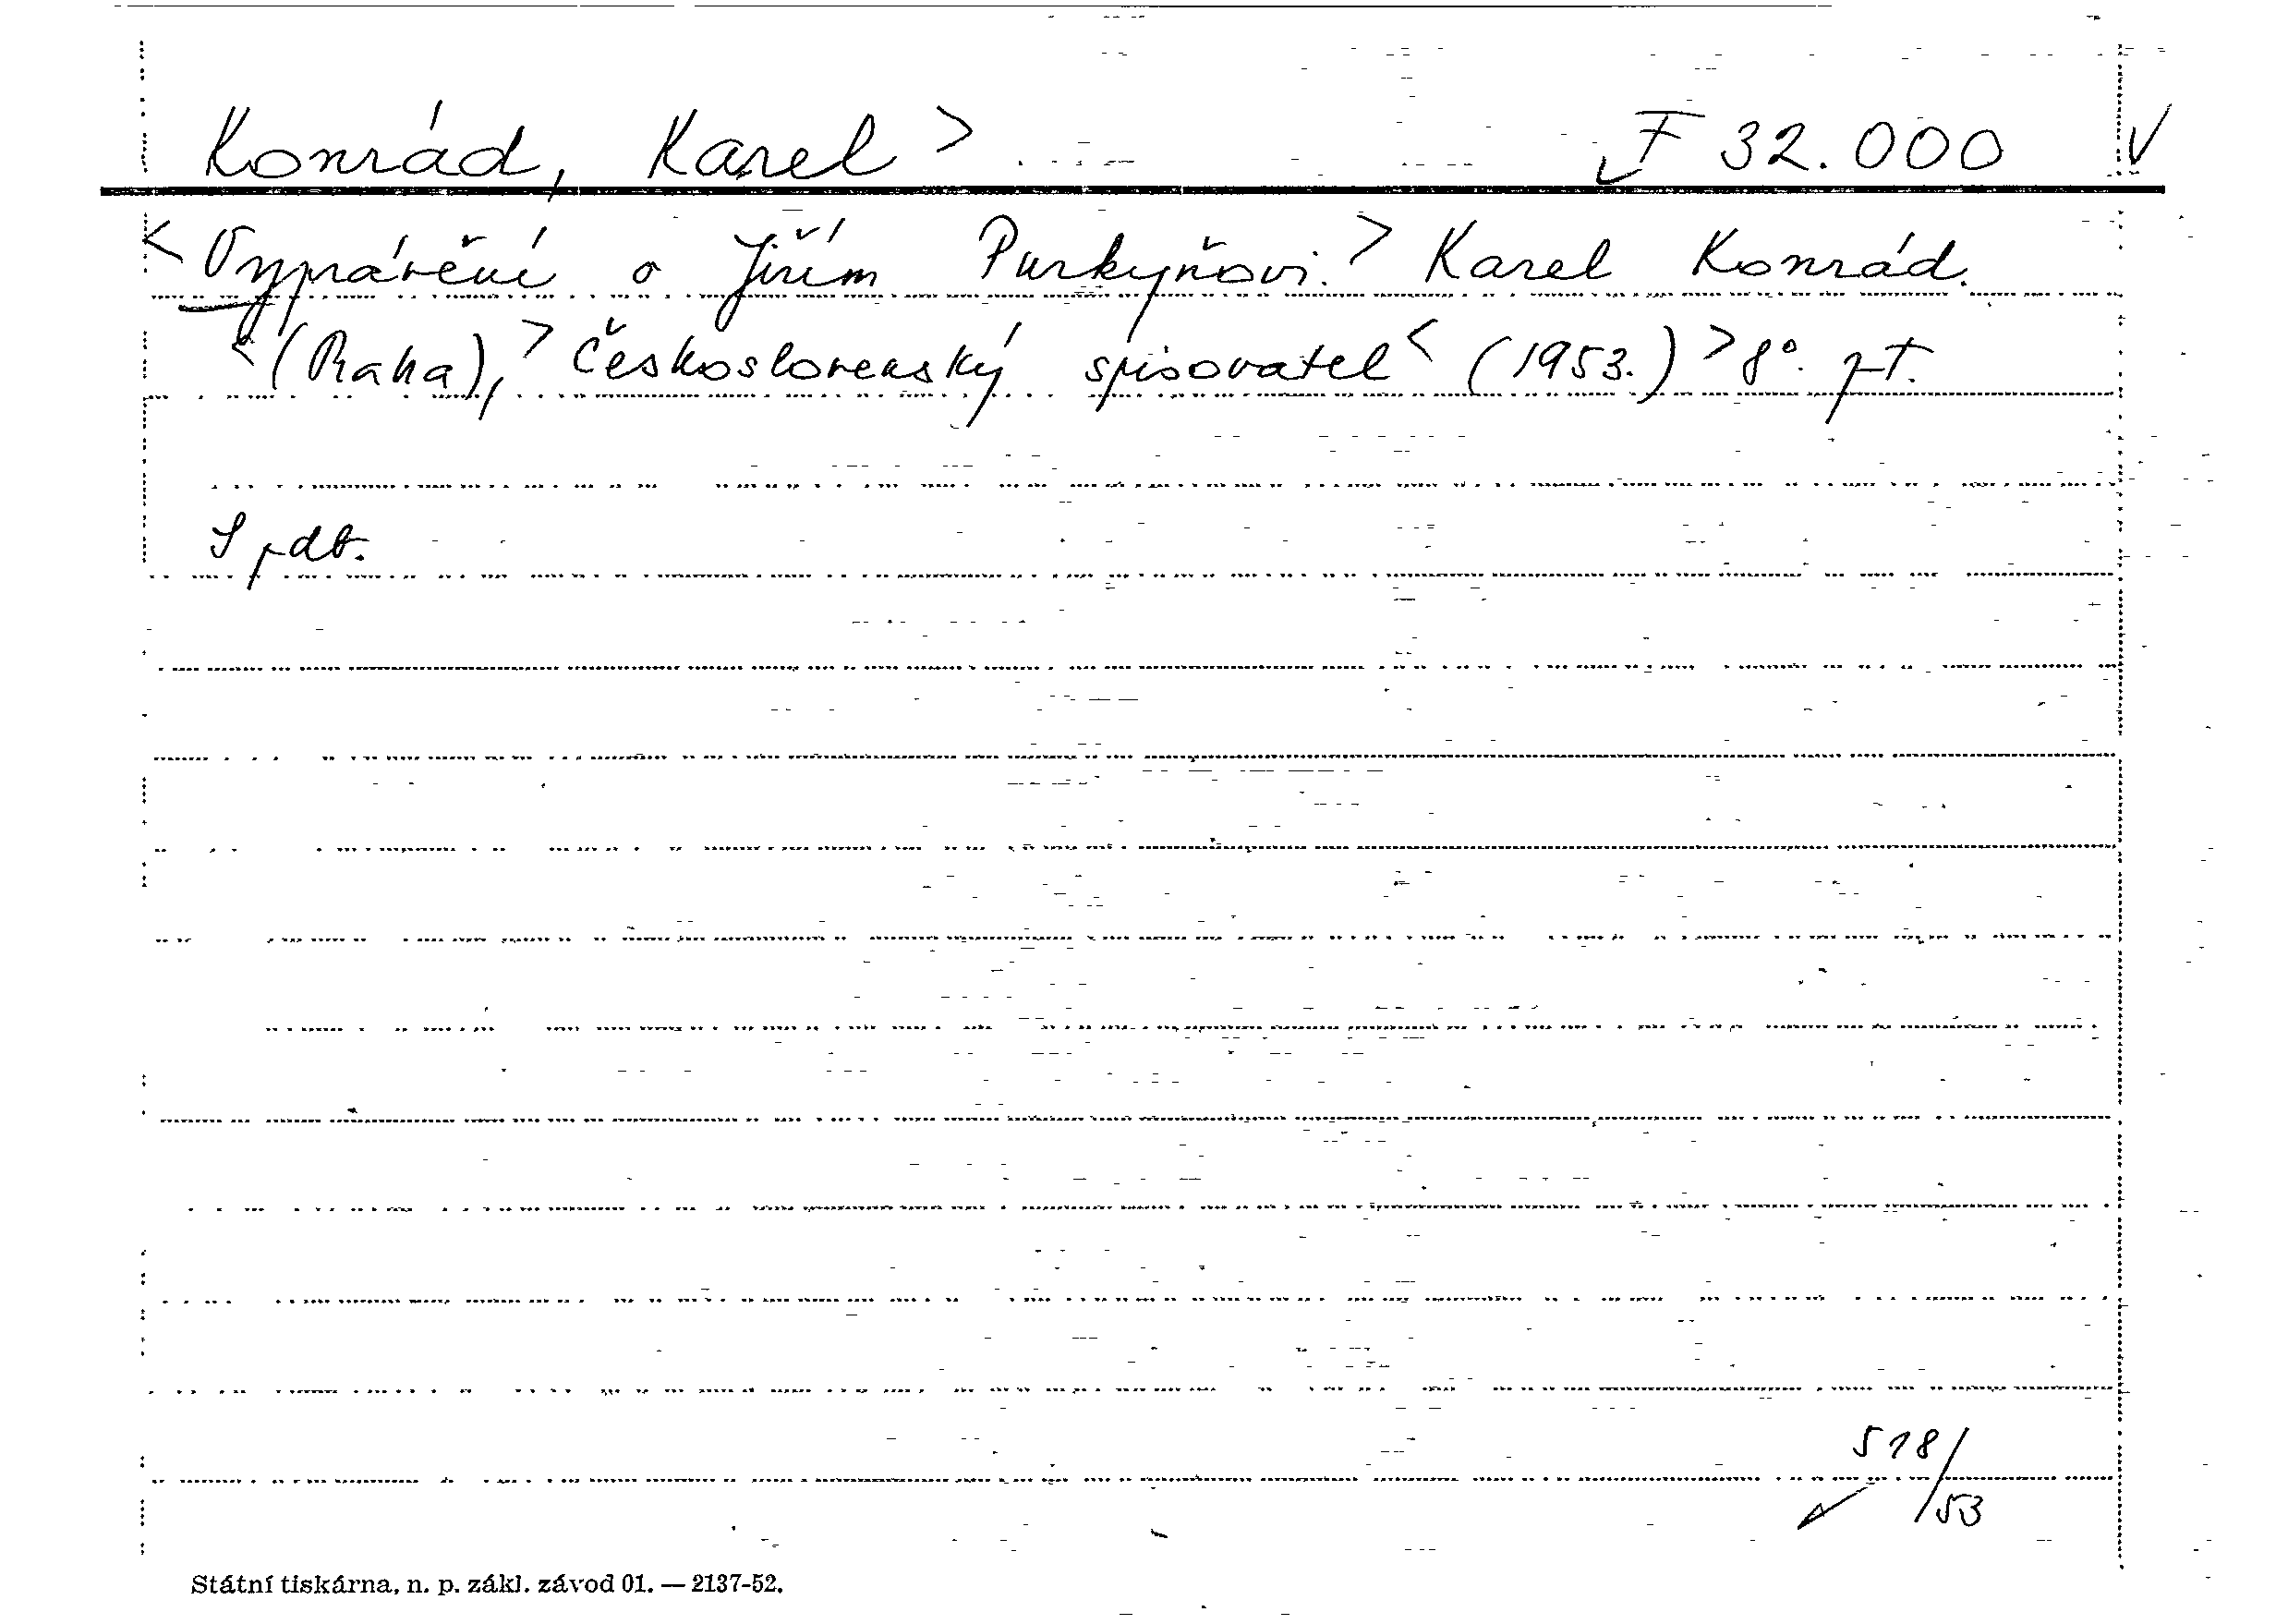 Konrád, Karel > F 32.000 V
< Vyprávění o Jiřím Purkyňovi. > Karel Konrád.
< (Praha), > Československý spisovatel < (1953.) > 8°. pt.
S pdt.
518/53
Státní tiskárna, n. p. zákl. závod 01. — 2137-52.